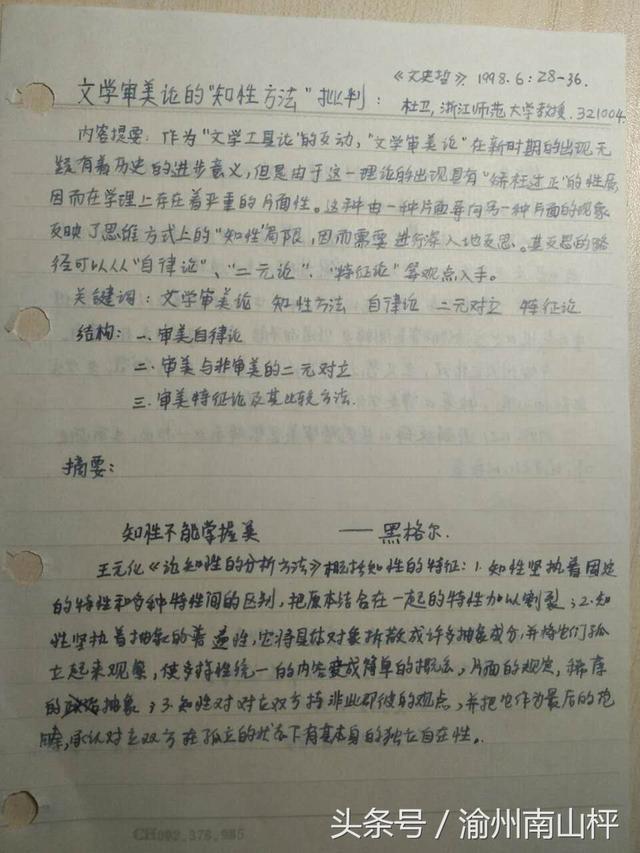 《文史哲》1998.6:28-36.
文学审美论的"知性方法"批判:
杜卫,浙江师范大学教授.321004
内容提要:作为"文学工具论"的反动,"文学审美论"在新时期的出现无
疑有着历史的进步意义,但是由于这一理论的出现具有"矫枉过正"的性质,
因而在学理上存在着严重的片面性。这种由一种片面导向另一种片面的现象
反映了思维方式上的"知性"局限,因而需要进行深入地反思。其反思的路
径可以从"自律论"、"二元论"、"特征论"等观点入手。
关键词:文学审美论 知性方法 自律论 二元对立 特征论
结构:一.审美自律论
二.审美与非审美的二元对立
三.审美特征论及其比较方法.
摘要:
知性不能掌握美 ——黑格尔.
王元化《论知性的分析方法》概括知性的特征:1.知性坚执着固定
的特性和多种特性间的区别,把原本结合在一起的特性加以割裂;2.知
性坚执着抽象的普遍性,它将具体对象拆散成许多抽象成分,并将它们孤
立起来观察,使多样性统一的内容变成简单的概念、片面的规定、稀薄
的抽象;3.知性对对立双方持非此即彼的观点,并把它作为最后的范
畴,承认对立双方在孤立的状态下有其本身的独立自在性。
CH092.378.985
头条号/渝州南山枰